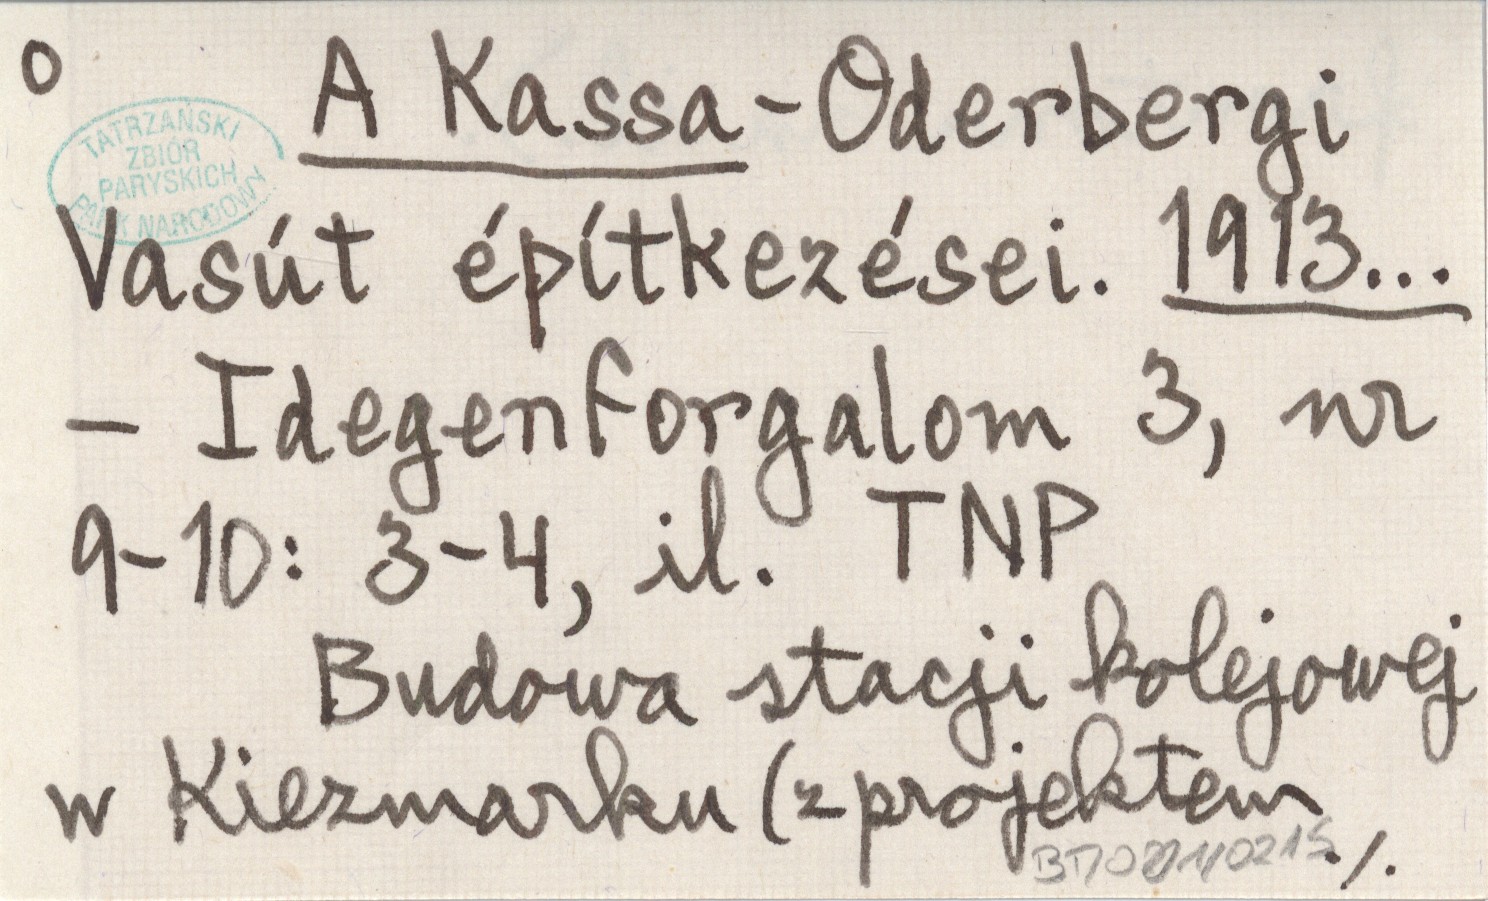 o A Kassa-Oderbergi
TATRZAŃSKI
ZBIÓR
PARYSKICH
PARK NARODOWY
Vasút építkezései. 1913...
- Idegenforgalom 3, nr
9-10: 3-4, il. TNP
Budowa stacji kolejowej
w Kiezmarku (z projektem
./.